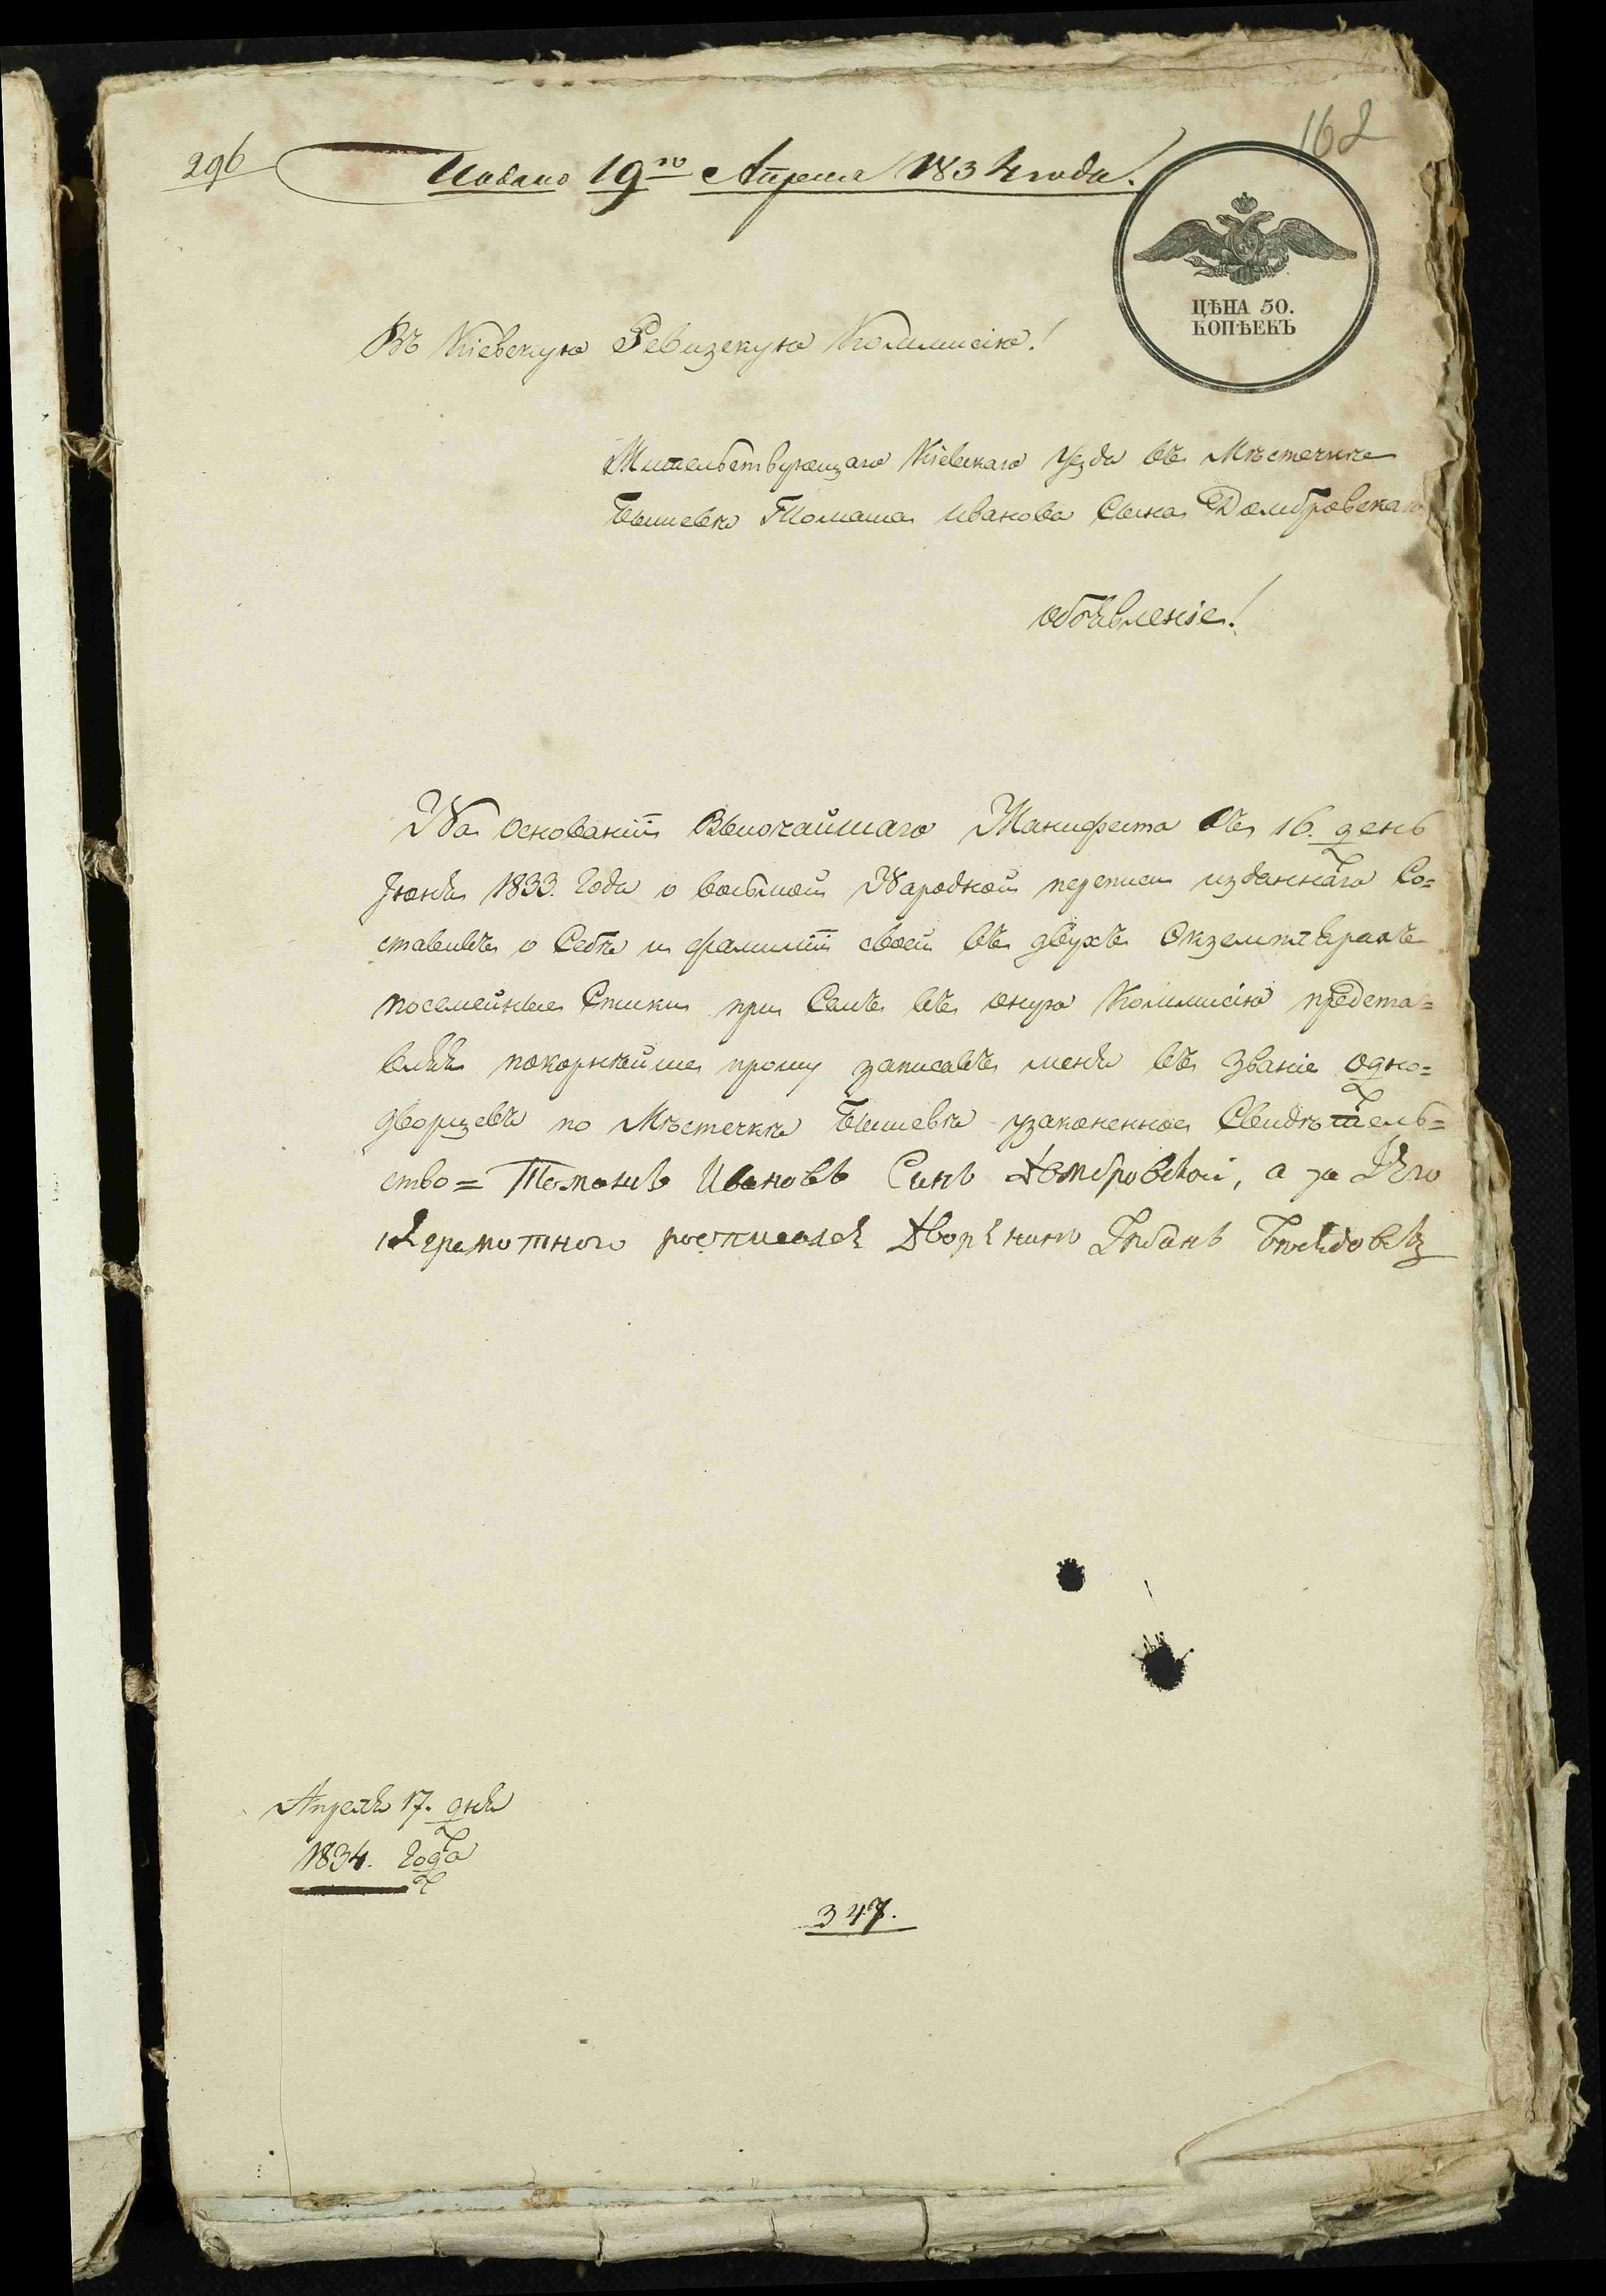 162
296 Подано 19го Апреля 1834 года.
ЦѢНА 50.
КОПѢЕКЪ
Въ Кіевскую Ревизскую Коммисію!
Жительствующаго Кіевскаго Уезда въ Мѣстечкѣ
Бышевѣ Томаша Иванова Сына Домбровскаго
обоявленіе!
На Основаніи Высочайшаго Манифеста въ 16. день
Іюня 1833. Года о восьмой Народной переписи изданнаго Со=
ставивъ о Себѣ и фамиліи своей въ двухъ Экземплярахъ
посемейные Списки при Семъ въ оную Коммисію предста=
вляя покорнѣйше прошу записавъ меня въ Званіе одно=
дворцевъ по Мѣстечкѣ Бышевѣ узаконенное Свидѣтель=
ство= Томашъ Ивановъ Синъ Домбровской, а за Его
неграмотного росписался Дворянинъ
Апреля 17. дня
1834. Года
347.